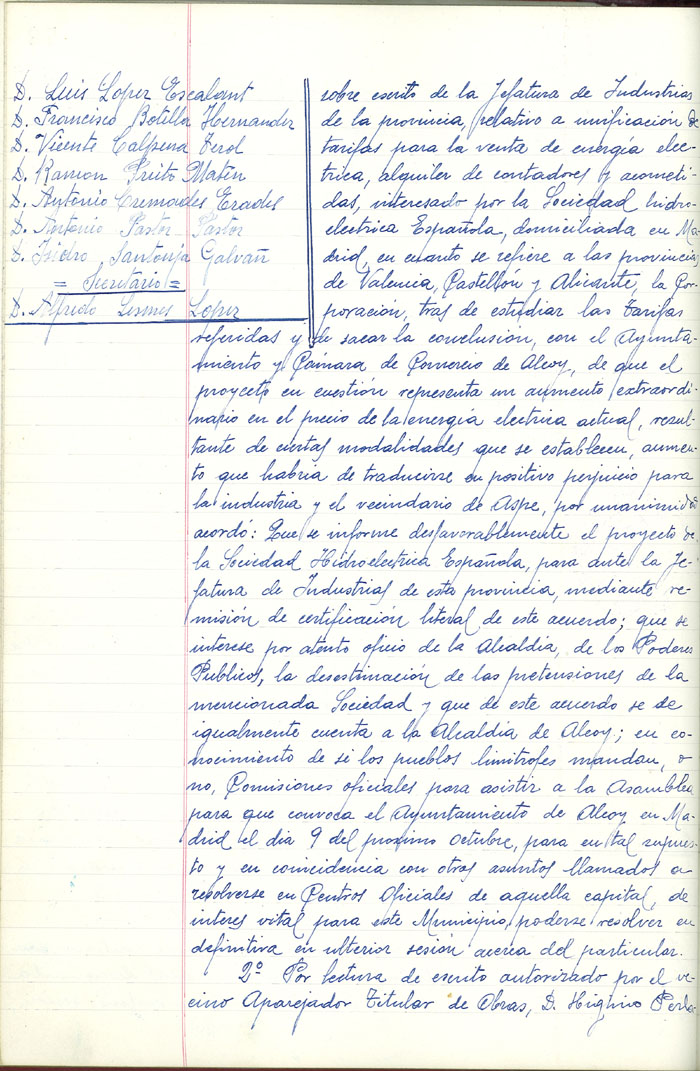 D. Luis Lopez Escalant
D. Francisco Botella Hernandez
D. Vicente Calpena Terol
D. Ramon Prieto Mateu
D. Antonio Cremades Erades
D. Antonio Pastor Pastor
D. Isidro Santonja Galvañ
= Secretario =
D. Alfredo Lopez
sobre escrito de la Jefatura de Industrias
de la provincia, relativo a unificación de
tarifas para la venta de energía eléc-
trica, alquiler de contadores y acometi-
das, interesado por la Sociedad hidro-
electrica Española, domiciliada en Ma-
drid, en cuanto se refiere a las provincias
de Valencia, Castellón y Alicante, la Cor-
poración, tras de estudiar las tarifas
referidas y de sacar la conclusion, con el Ayunta-
miento y Cámara de Comercio de Alcoy, de que el
proyecto en cuestión representa un aumento extraordi-
nario en el precio de la energía electrica actual, resul-
tante de ciertas modalidades que se establecen, aumen-
to que habria de traducirse en positivo perjuicio para
la industria y el vecindario de Aspe, por unanimidad
acordó: Que se informe desfavorablemente el proyecto de
la Sociedad Hidroelectrica Española, para ante la Je-
fatura de Industrias de esta provincia, mediante re-
misión de certificación literal de este acuerdo; que se
interese por atento oficio de la Alcaldía, de los Poderes
Publicos, la desestimación de las pretensiones de la
mencionada Sociedad y que de este acuerdo se de
igualmente cuenta a la Alcaldia de Alcoy; en co-
nocimiento de si los pueblos limitrofes mandan, o
no, Comisiones oficiales para asistir a la Asamblea
para que convoca el Ayuntamiento de Alcoy en Ma-
drid el dia 9 del proximo octubre, para en tal supues-
to y en coincidencia con otros asuntos llamados a
resolverse en Centros Oficiales de aquella capital, de
interes vital para este Municipio, poderse resolver en
definitiva en ulterior sesión acerca del particular.
2º Por lectura de escrito autorizado por el ve-
cino Aparejador Titular de Obras, D. Higinio Perlo-